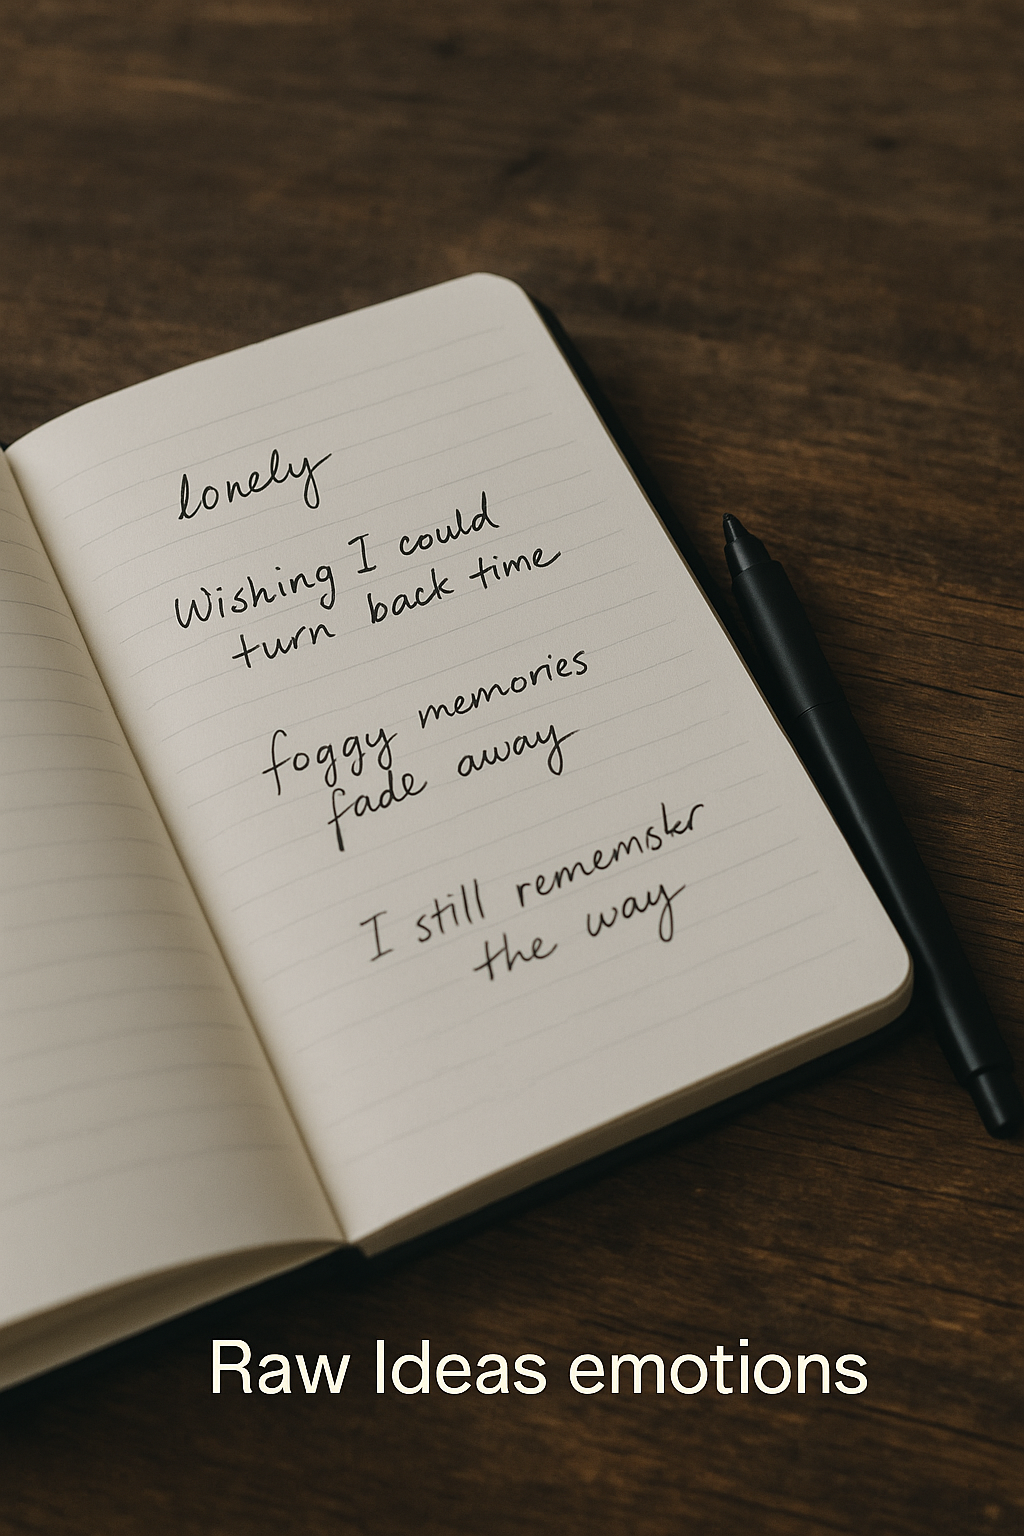 lonely
Wishing I could
turn back time
foggy memories
fade away
I still rememsker
the way
Raw Ideas emotions